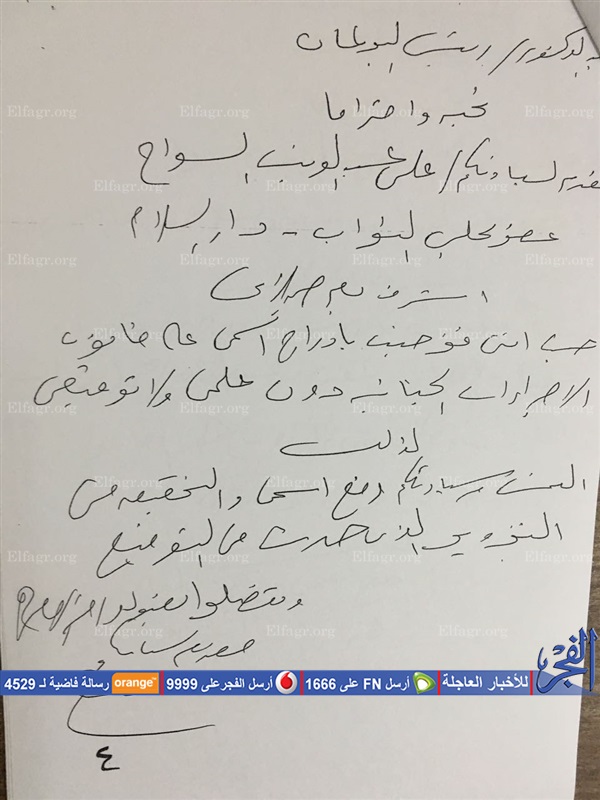 الدكتور / رئيس البرلمان
تحية واحتراما
مقدم لسيادتكم / على عبد الونيس السواح
عضو مجلس النواب - دار السلام
اتشرف بعرض الاتى
حيث اننى فوجئت بادراج اسمى على قانون
الاجراءات الجنائية دون علمى ولا توقيعى
لذلك
التمس من سيادتكم رفع اسمى والتحقيق فى
التزوير الذى حدث فى التوقيع
وتفضلوا بقبول
مقدمه لسيادتكم
الفجر
للأخبار العاجلة أرسل FN على 1666 أرسل الفجر على 9999 orange رسالة فاضية لـ 4529
٤
Elfagr.org